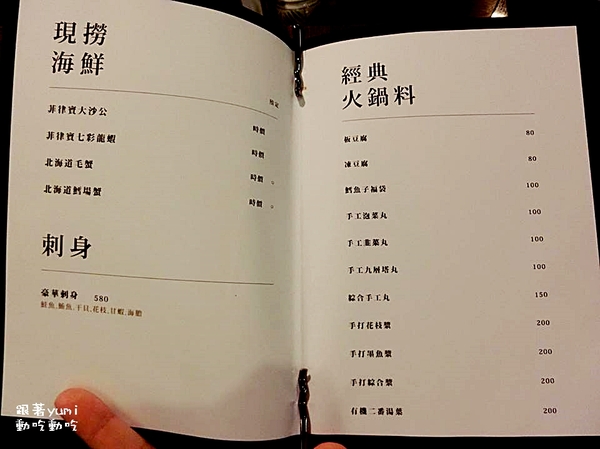 現撈
海鮮
預定
菲律賓大沙公 時價
菲律賓七彩龍蝦 時價
北海道毛蟹 時價
北海道鱈場蟹 時價
刺身
豪華刺身 580
鮭魚,鮪魚,干貝,花枝,甘蝦,海膽
經典
火鍋料
板豆腐 80
凍豆腐 80
鱈魚子福袋 100
手工泡菜丸 100
手工韭菜丸 100
手工九層塔丸 100
綜合手工丸 150
手打花枝漿 200
手打墨魚漿 200
手打綜合漿 200
有機二番湯葉 200
跟著yumi
動吃動吃